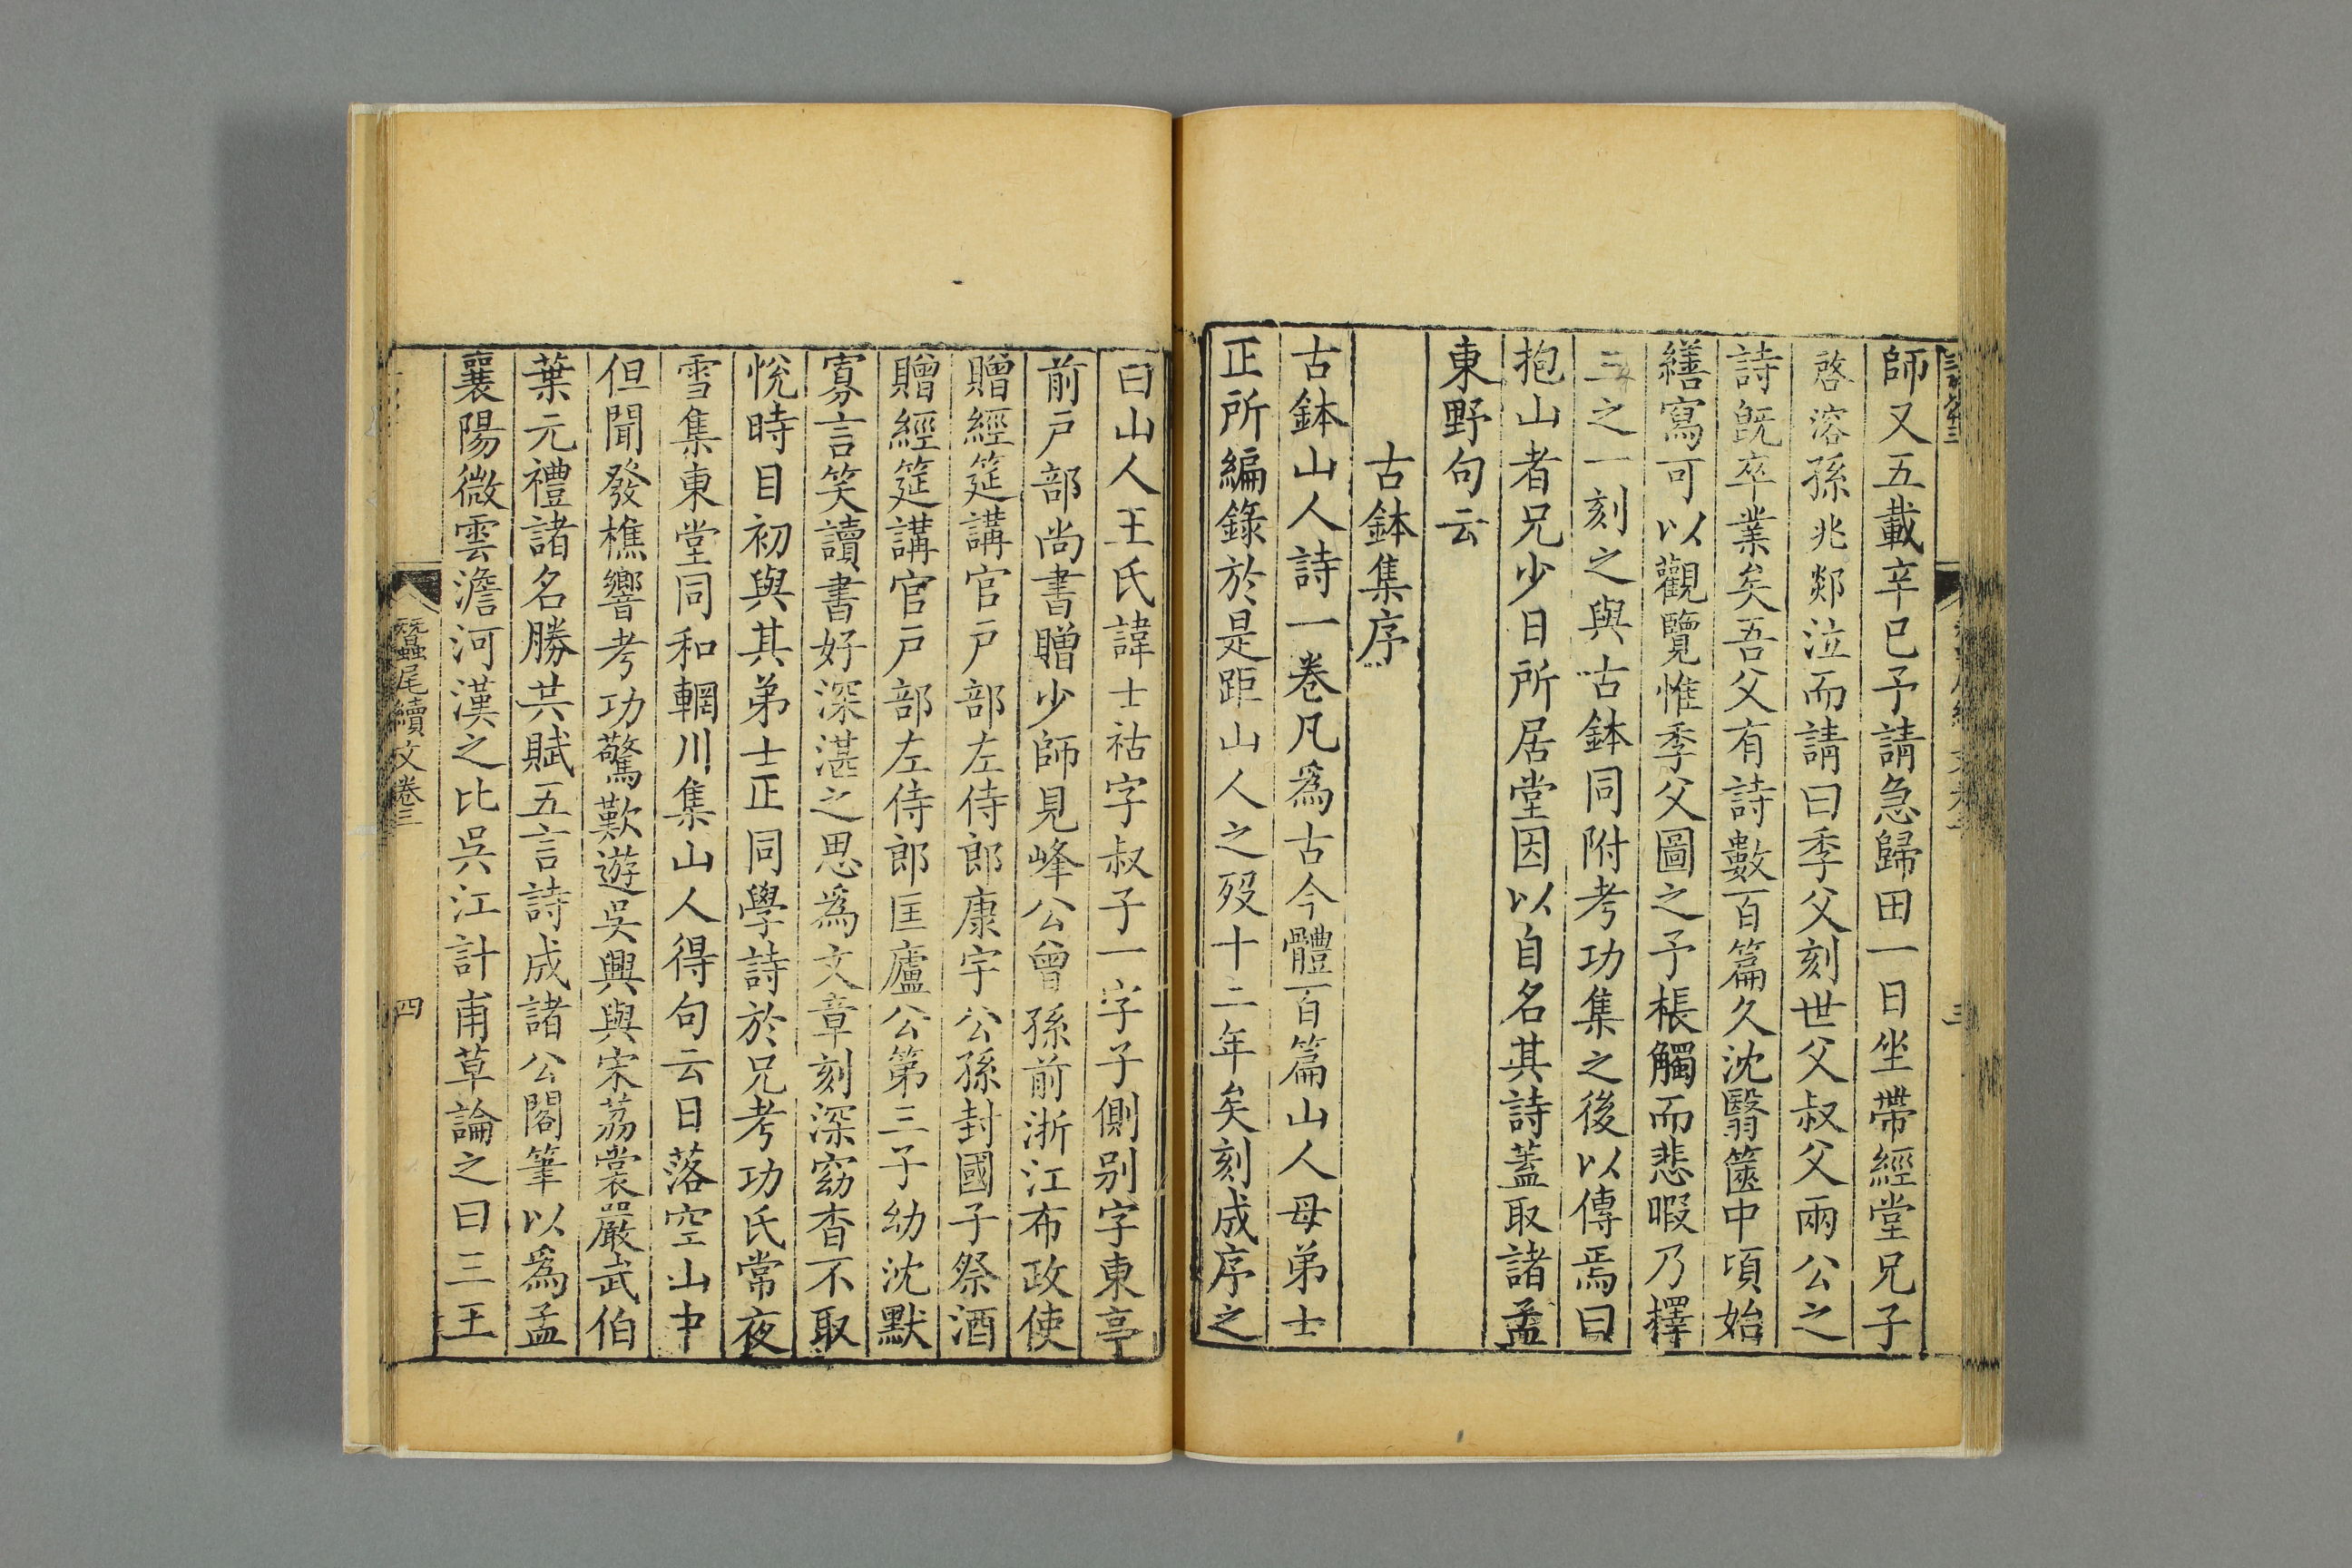 師又五載辛巳予請急歸田一日坐帶經堂兄子
啓溶孫兆郯泣而請曰季父刻世父叔父兩公之
詩旣卒業矣吾父有詩數百篇久沈翳篋中頃始
繕寫可以觀覽惟季父圖之予棖觸而悲暇乃擇
三之一刻之與古鉢同附考功集之後以傳焉曰
抱山者兄少日所居堂因以自名其詩蓋取諸孟
東野句云
古鉢集序
古鉢山人詩一卷凡爲古今體百篇山人母弟士
正所編錄於是距山人之歿十二年矣刻成序之
曰山人王氏諱士祜字叔子一字子側别字東亭
前戸部尚書贈少師見峰公曾孫前浙江布政使
贈經筵講官戸部左侍郎康宇公孫封國子祭酒
贈經筵講官戸部左侍郎匡廬公第三子幼沈默
寡言笑讀書好深湛之思爲文章刻深窈杳不取
悅時目初與其弟士正同學詩於兄考功氏常夜
雪集東堂同和輞川集山人得句云日落空山中
但聞發樵響考功驚歎遊吳興與宋荔裳嚴武伯
葉元禮諸名勝共賦五言詩成諸公閣筆以爲孟
襄陽微雲澹河漢之比吳江計甫草論之曰三王
蠶尾續文卷三
四